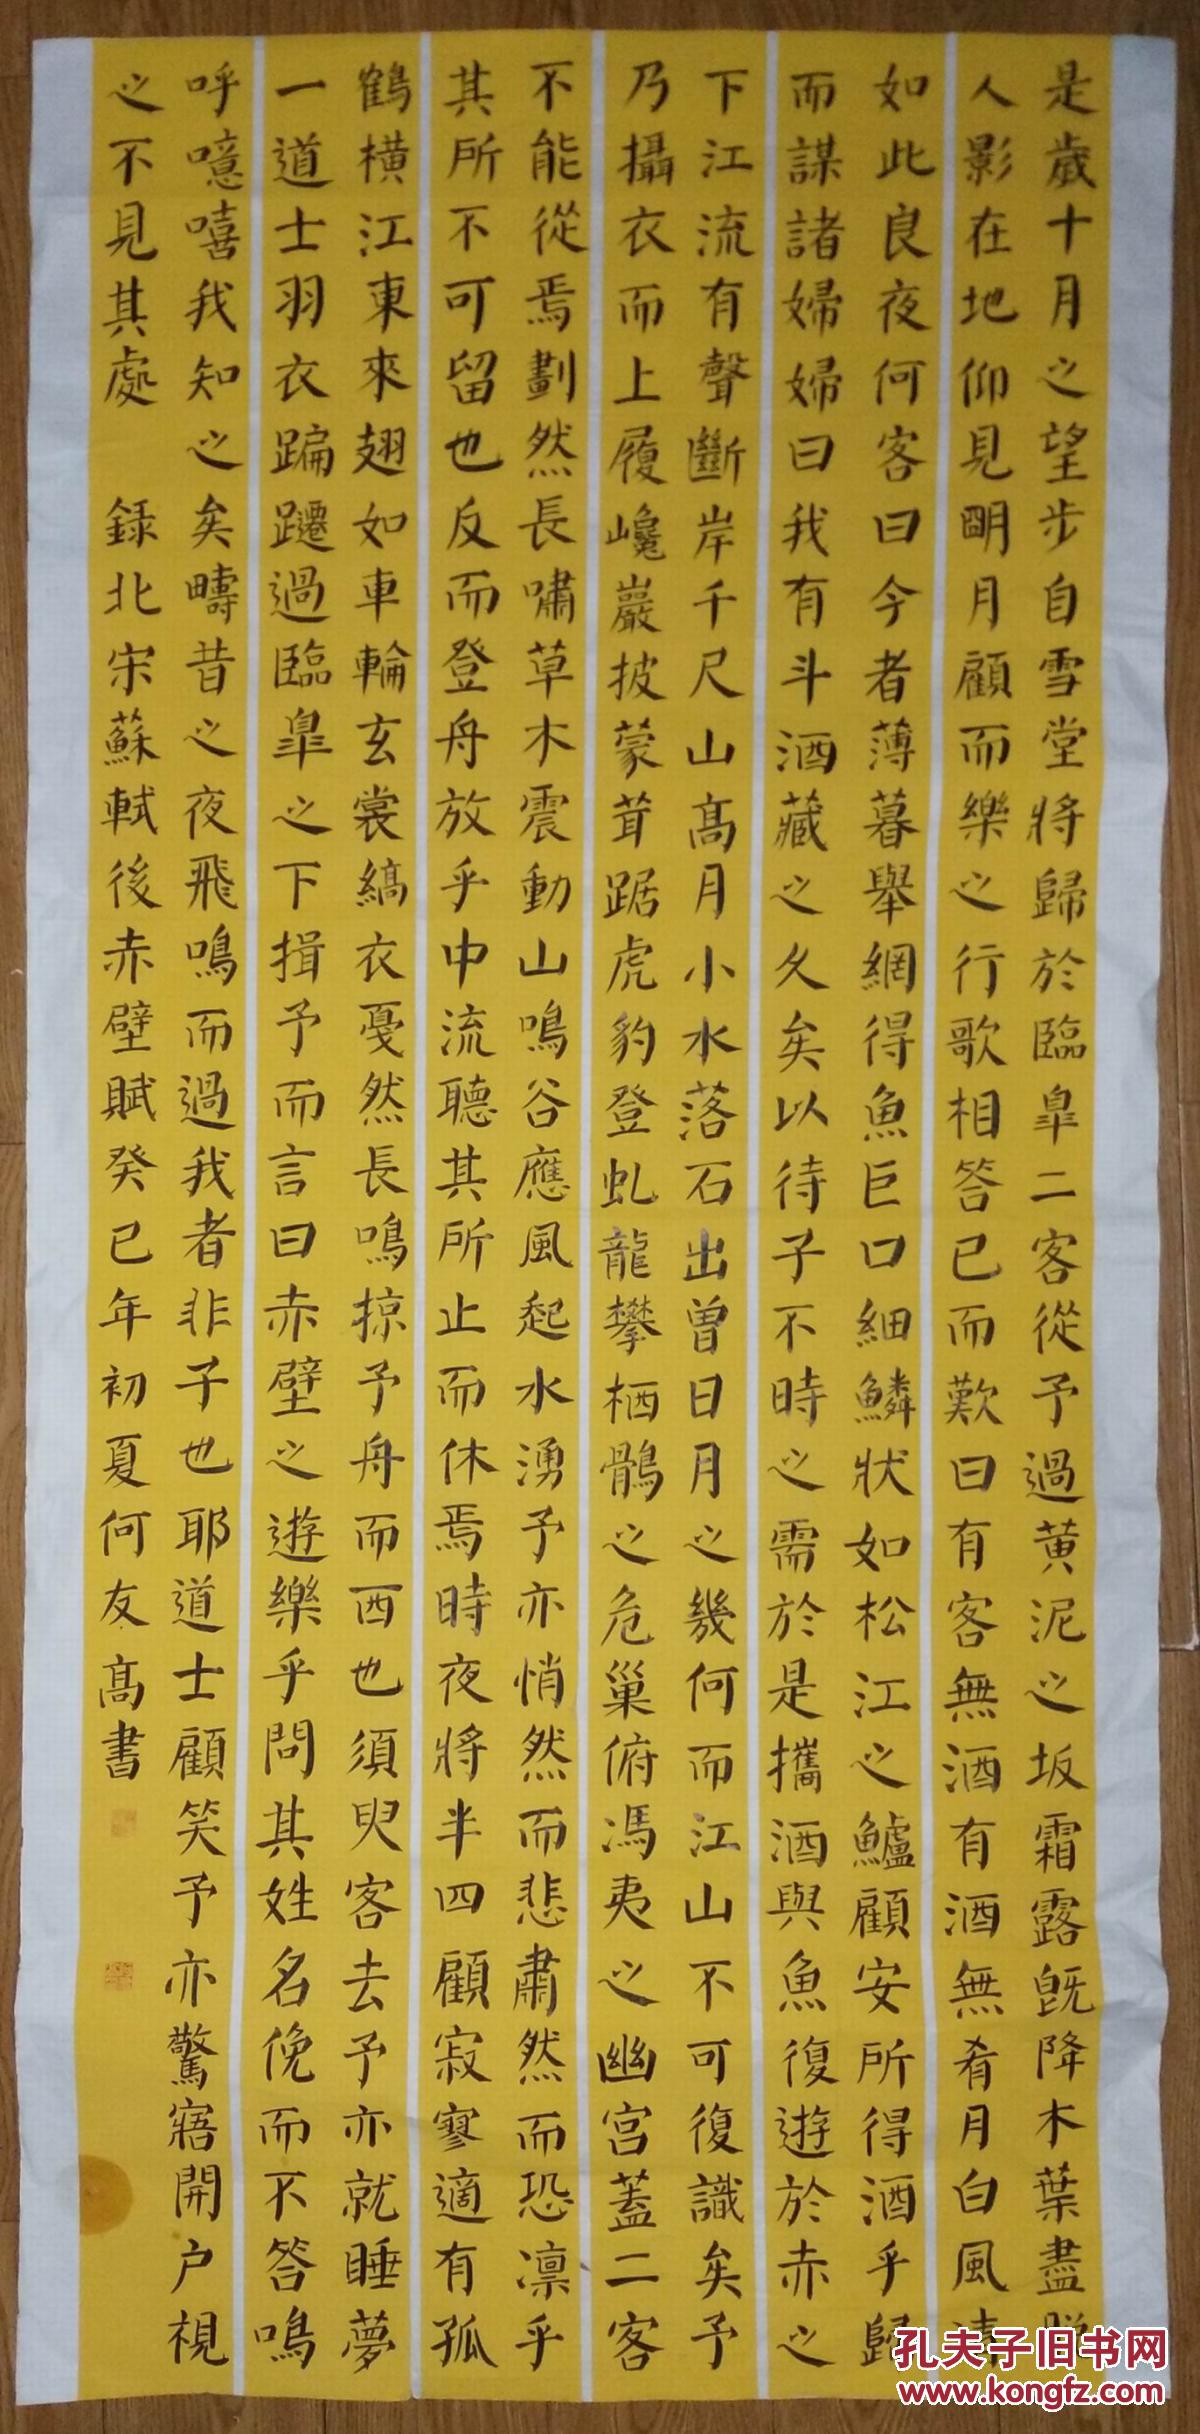 是歲十月之望步自雪堂將歸於臨皐二客從予過黃泥之坂霜露既降木葉盡
人影在地仰見明月顧而樂之行歌相答已而歎曰有客無酒有酒無肴月白風清
如此良夜何客曰今者薄暮舉網得魚巨口細鱗狀如松江之鱸顧安所得酒乎歸
而謀諸婦婦曰我有斗酒藏之久矣以待子不時之需於是攜酒與魚復遊於赤之
下江流有聲斷岸千尺山髙月小水落石出曾日月之幾何而江山不可復識矣予
乃攝衣而上履巉巖披蒙茸踞虎豹登虬龍攀栖鶻之危巢俯馮夷之幽宮蓋二客
不能從焉劃然長嘯草木震動山鳴谷應風起水湧予亦悄然而悲肅然而恐凛乎
其所不可留也反而登舟放乎中流聽其所止而休焉時夜將半四顧寂寥適有孤
鶴橫江東來翅如車輪玄裳縞衣戛然長鳴掠予舟而西也須臾客去予亦就睡夢
一道士羽衣蹁躚過臨皐之下揖予而言曰赤壁之遊樂乎問其姓名俛而不答鳴
呼噫嘻我知之矣疇昔之夜飛鳴而過我者非子也耶道士顧笑予亦驚寤開戶視
之不見其處 錄北宋蘇軾後赤壁賦癸巳年初夏何友髙書
孔夫子旧书网
www.kongfz.com